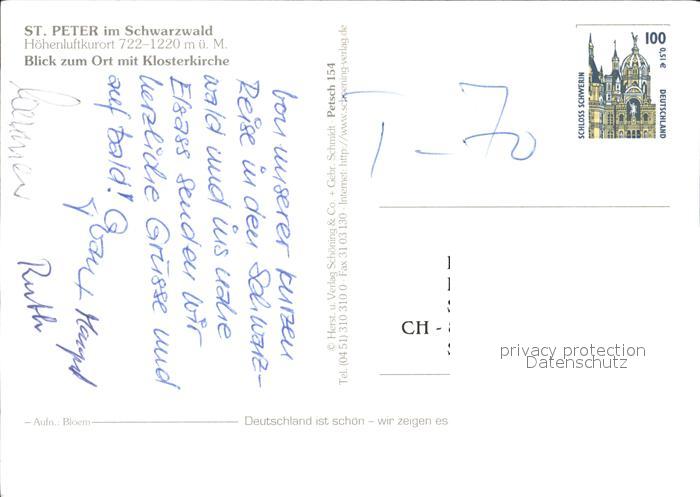 ST. PETER im Schwarzwald
Höhenluftkurort 722–1220 m ü. M.
Blick zum Ort mit Klosterkirche
Von unserer kurzen
Reise in den Schwarz-
wald und ins nahe
Elsass senden wir
herzliche Grüsse und
auf bald!
Ruth
© Herst. u. Verlag Schöning & Co. + Gebr. Schmidt Petsch 154
Tel. (04 51) 310 310 0 · Fax 31 03 130 · Internet: http://www.schoening-verlag.de
T-70
100
0,51 €
SCHLOSS SCHWERIN
DEUTSCHLAND
CH -
privacy protection
Datenschutz
– Aufn.: Bloem
Deutschland ist schön – wir zeigen es